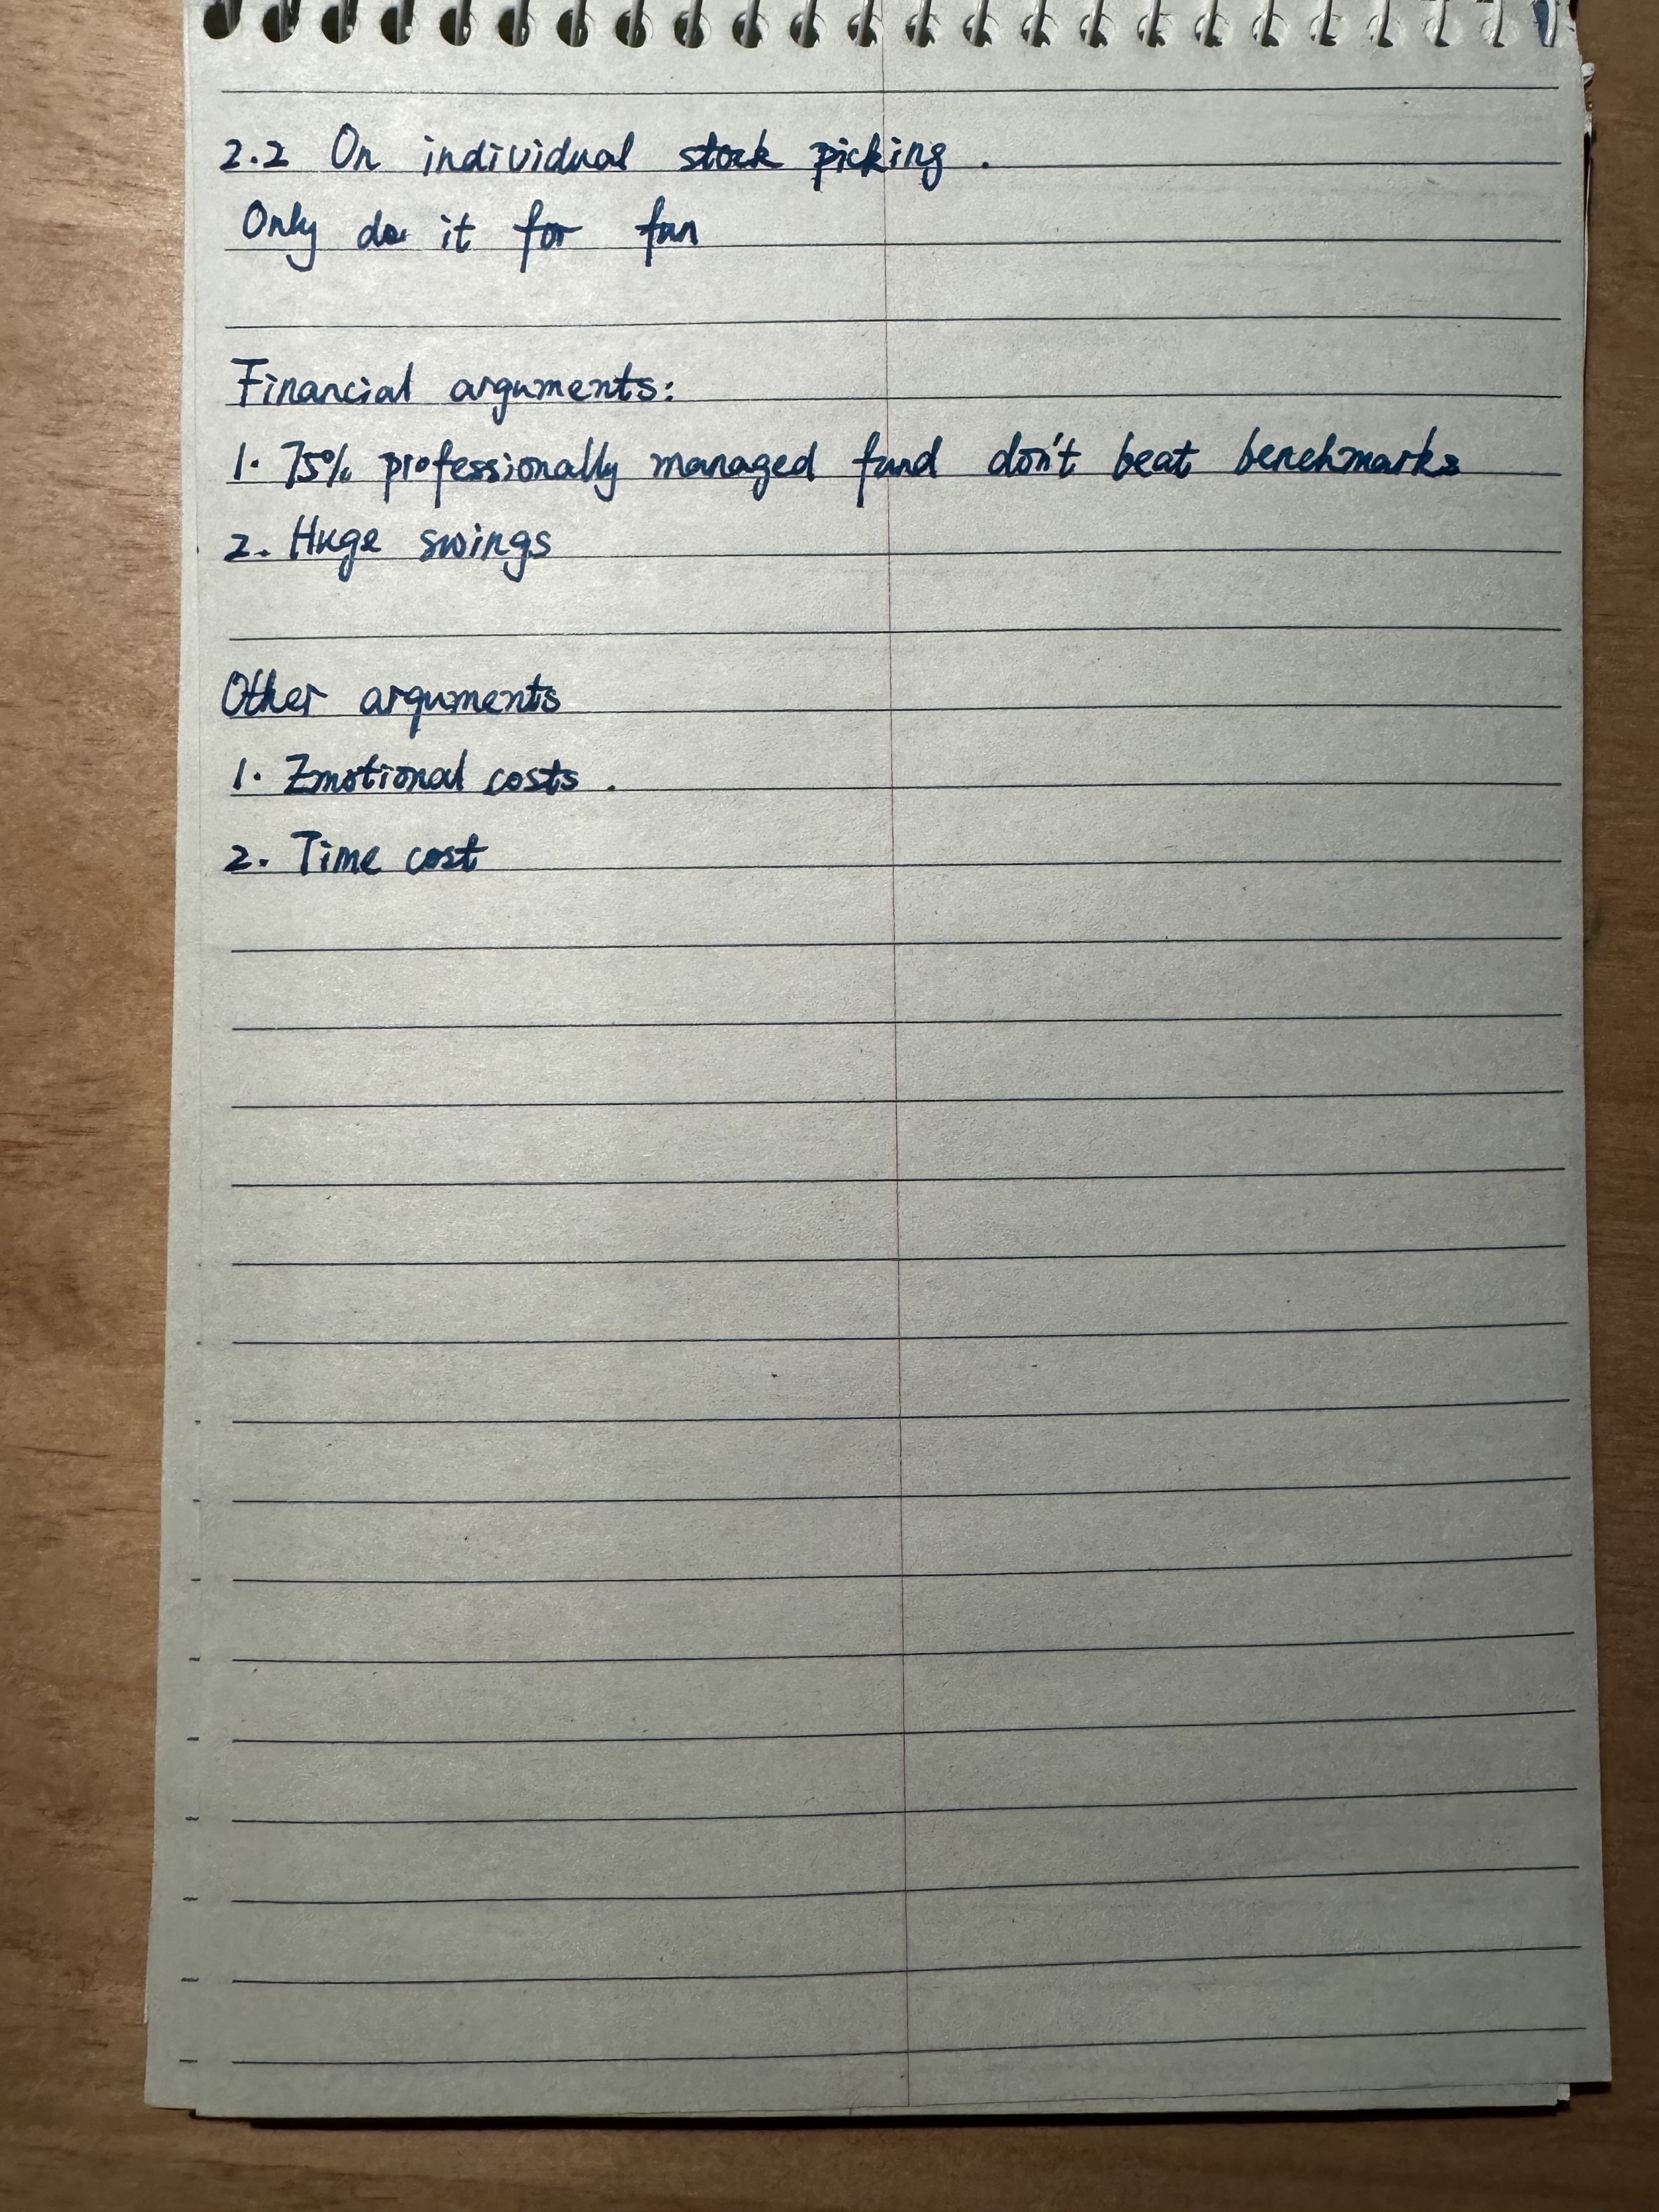 2.2 On individual stock picking.
Only do it for fun
Financial arguments:
1. 75% professionally managed fund don't beat benchmarks
2. Huge swings
Other arguments
1. Emotional costs.
2. Time cost